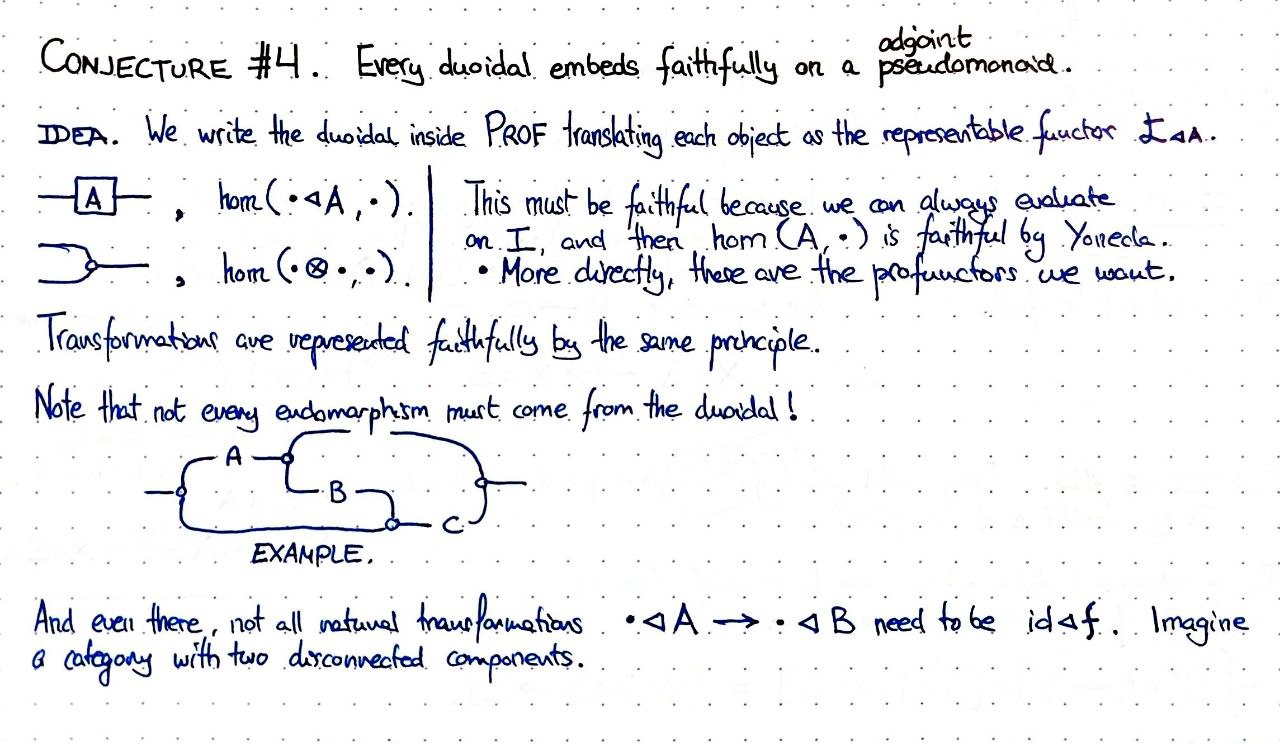 CONJECTURE #4. Every duoidal embeds faithfully on a adjoint pseudomonoid.
IDEA. We write the duoidal inside PROF translating each object as the representable functor I◁A.
A , hom(•◁A,•).
, hom(•⊗•,•).
This must be faithful because we can always evaluate
on I, and then hom(A,•) is faithful by Yoneda.
• More directly, these are the profunctors we want.
Transformations are represented faithfully by the same principle.
Note that not every endomorphism must come from the duoidal!
A
B
C
EXAMPLE.
And even there, not all natural transformations •◁A → •◁B need to be id◁f. Imagine
a category with two disconnected components.